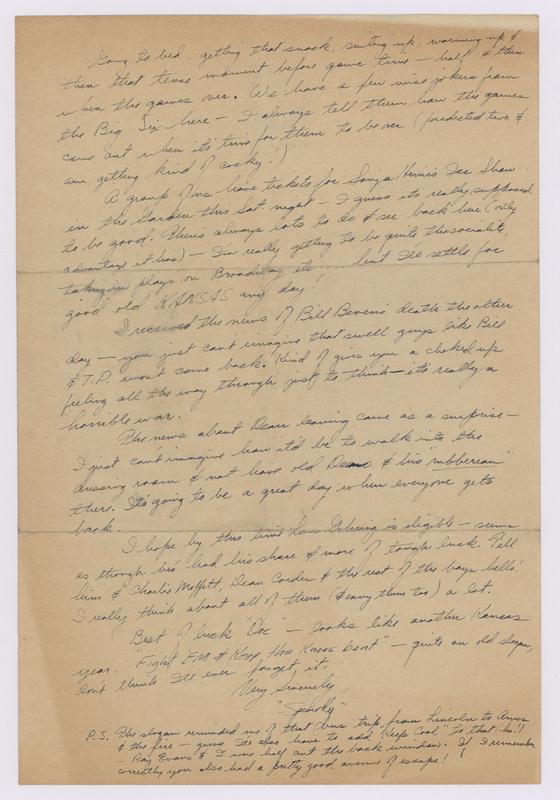 Going to bed, getting that snack, suiting up, warming up &
then that tense moment before game time - half & then
when the games over. We have a few wise jokers from
the Big Six here - I always tell them how the games
came out when it's time for them to be over (predicted two &
am getting kind of cocky!)
A group of us have tickets for Sonja Henie's Ice Show
in the Garden this Sat. night - I guess its really supposed
to be good. There's always lots to do & see back here (only
advantage it has) - I'm really getting to be quite the socialite,
taking in plays on Broadway etc .... but I'll settle for
good old KANSAS any day!
I received the news of Bill Beven's death the other
day - you just can't imagine that swell guys like Bill
& T.P. won't come back. Kind of gives you a choked up
feeling all the way through just to think - it's really a
horrible war.
The news about Dean leaving came as a surprise -
I just can't imagine how it'd be to walk into the
dressing room & not have old Dean & his "rubberean"
there. It's going to be a great day when everyone gets
back.
I hope by this time is eligible - seems
as though his had his share & more of tough luck. Tell
him & Charlie Moffitt, Dean Corder & the rest of the boys hello!
I really think about all of them (& envy them too) a lot.
Best of luck "Doc" - looks like another Kansas
year. "Fight 'EM & Keep the Knees bent" - quite an old slogan,
don't think I'll ever forget it.
Very Sincerely,
"Sparky"
P.S. The slogan reminded me of that bus trip from Lincoln to Ames
& the fire - guess I'll also have to add "Keep Cool" to that (ha!)
- Ray Evans & I were half out the back window. If I remember
correctly you also had a pretty good avenue of escape!!